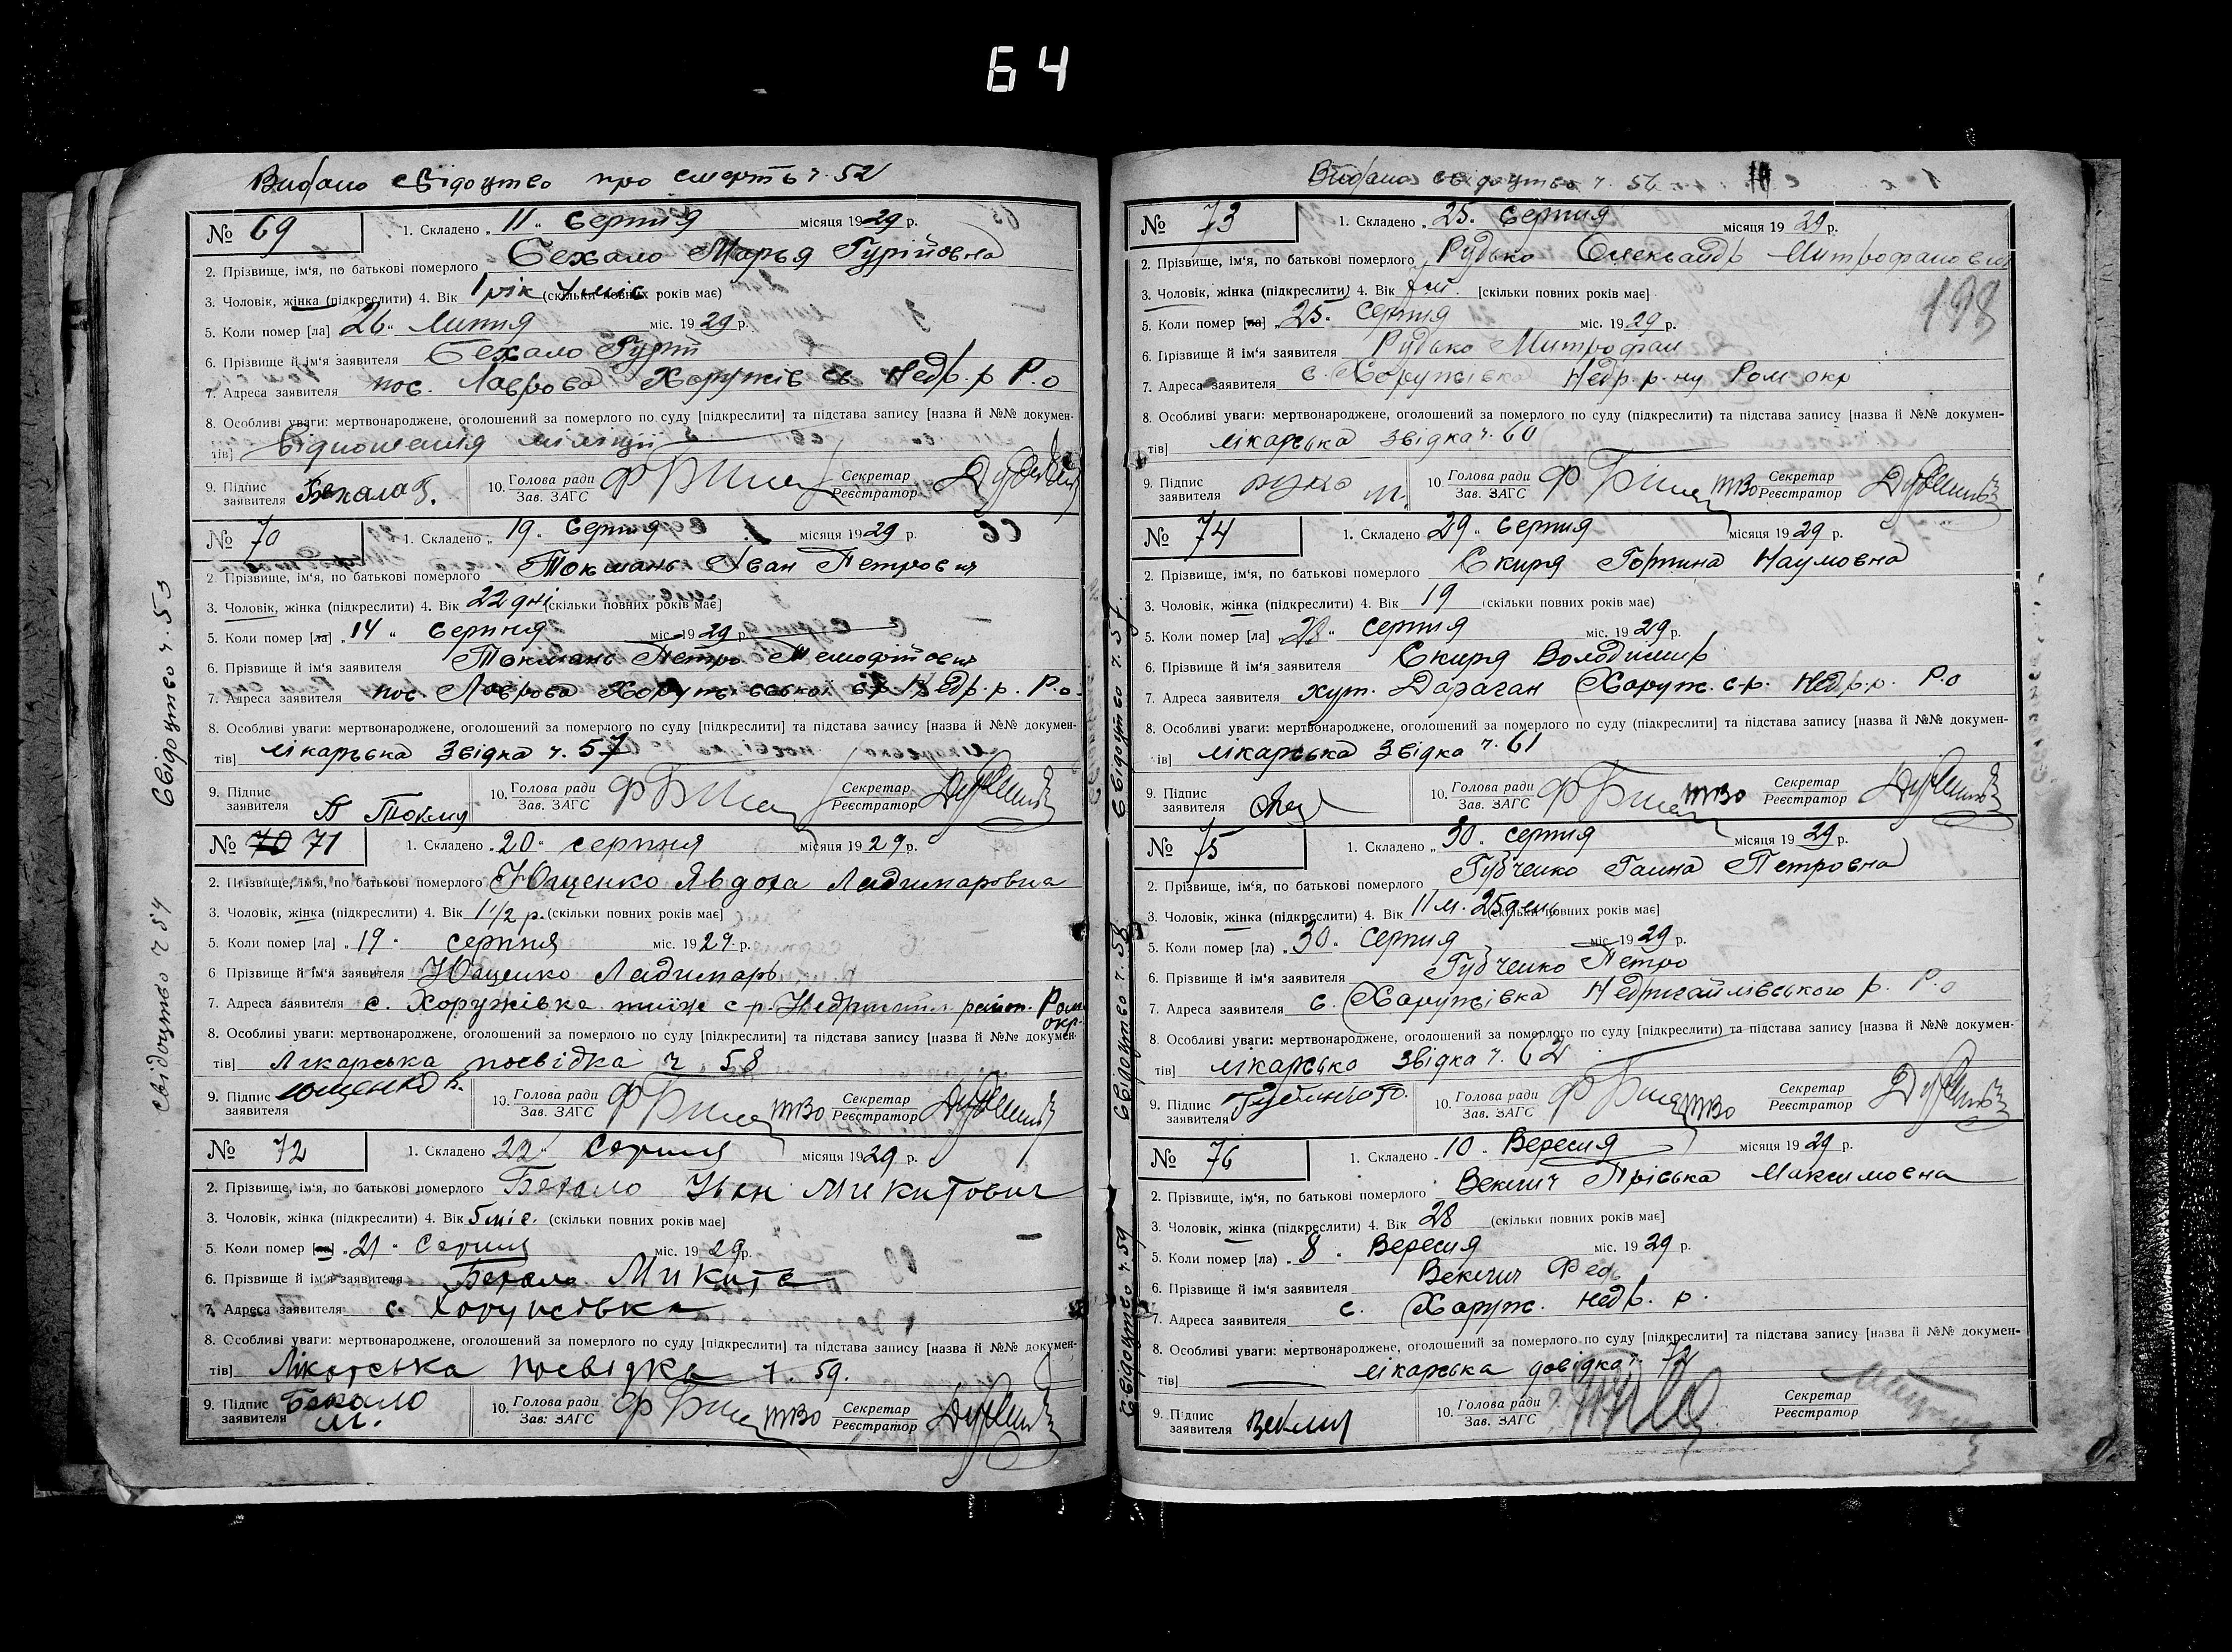 64
Видано свідоцтво про смерть ч. 52
№ 69
1. Складено „ 11 “ серпня місяця 1929 р.
2. Прізвище, ім‘я, по батькові померлого Бехало Марья Гурійовна
3. Чоловік, жінка (підкреслити) 4. Вік 1 рік 4 міс. (скільки повних років має)
5. Коли помер [ла] 26 “ липня міс. 1929 р.
6. Прізвище й ім‘я заявителя Бехало Гурій
7. Адреса заявителя пос. Лаврова Хоружів св Недр. р Р.о
8. Особливі уваги: мертвонароджене, оголошений за померлого по суду [підкреслити] та підстава запису [назва й №№ докумен-
тів] Відношення міліції
9. Підпис заявителя Бехала Г. 10. Голова ради Зав. ЗАГС Секретар Реєстратор
№ 70
1. Складено „ 19 „ серпня місяця 1929 р.
2. Прізвище, ім‘я, по батькові померлого Токмань Іван Петрович
3. Чоловік, жінка (підкреслити) 4. Вік 22 дні (скільки повних років має]
5. Коли помер [ла] „ 14 “ серпня міс. 1929 р.
6. Прізвище й ім‘я заявителя Токмань Петро
7. Адреса заявителя пос Лаврова Хоружівської ср Недр. р. Р.о.
8. Особливі уваги: мертвонароджене, оголошений за померлого по суду [підкреслити] та підстава запису [назва й №№ докумен-
тів] лікарська звідка ч. 57
9. Підпис заявителя П Токмя 10. Голова ради Зав. ЗАГС Секретар Реєстратор
Свідоцтво ч. 53
№ 70 71
1. Складено „ 20 “ серпня місяця 1929 р.
2. Прізвище, ім‘я, по батькові померлого Ющенко Явдоха Ладимаровна
3. Чоловік, жінка (підкреслити) 4. Вік 1 1/2 р. (скільки повних років має]
5. Коли помер [ла] „ 19 “ серпня міс. 1929 р.
6 Прізвище й ім‘я заявителя Ющенко Ладимарь
7. Адреса заявителя с. Хоружівка тиїж с-р. Недригайл. район. Ром. окр.
8. Особливі уваги: мертвонароджене, оголошений за померлого по суду [підкреслити] та підстава запису [назва й №№ докумен-
тів] Лікарська посвідка ч 58
9. Підпис заявителя ющенко в. 10. Голова ради Зав. ЗАГС тво Секретар Реєстратор
свідоцтво ч 54
№ 72
1. Складено 22 “ Серпня місяця 1929 р.
2. Прізвище, ім‘я, по батькові померлого Бехало Іван Микитович
3. Чоловік, жінка (підкреслити) 4. Вік 5 міс. (скільки повних років має]
5. Коли помер [ла] „ 21 “ Серпня міс. 1929 р.
6. Прізвище й ім‘я заявителя Бехало Микита
7. Адреса заявителя с. Хоружівка
8. Особливі уваги: мертвонароджене, оголошений за померлого по суду [підкреслити] та підстава запису [назва й №№ докумен-
тів] Лікарська посвідка ч. 59.
9. Підпис заявителя Бехало М. 10. Голова ради Зав. ЗАГС тво Секретар Реєстратор
Видано свідоцтво ч. 56
№ 73
1. Складено „ 25. серпня місяця 1929 р.
2. Прізвище, ім‘я, по батькові померлого Рудько Олександр Митрофанович
3. Чоловік, жінка (підкреслити) 4. Вік [скільки повних років має]
198
5. Коли помер [ла] „ 25. Серпня міс. 1929 р.
6. Прізвище й ім‘я заявителя Рудько Митрофан
7. Адреса заявителя с. Хоружівка Недр. р-ну Ром окр
8. Особливі уваги: мертвонароджене, оголошений за померлого по суду (підкреслити) та підстава запису [назва й №№ докумен-
тів] лікарська звідка ч. 60
9. Підпис заявителя 10. Голова ради Зав. ЗАГС тво Секретар Реєстратор
№ 74
1. Складено 29 “ серпня місяця 1929 р.
2. Прізвище, ім‘я, по батькові померлого Скиря Горпина Наумовна
3. Чоловік, жінка (підкреслити) 4. Вік 19 (скільки повних років має)
5. Коли помер [ла] „ 28 “ серпня міс. 1929 р.
6. Прізвище й ім‘я заявителя Скиря Володимир
7. Адреса заявителя хут. Дараган Харуж. с-р. Недр. р. Р.о
8. Особливі уваги: мертвонароджене, оголошений за померлого по суду (підкреслити] та підстава запису [назва й №№ докумен-
ів] лікарська звідка ч. 61
9. Підпис заявителя 10. Голова ради Зав. ЗАГС тво Секретар Реєстратор
Свідоцтво ч. 57
№ 75
1. Складено „ 30. серпня місяця 1929 р.
2. Прізвище, ім‘я, по батькові померлого Губченко Ганна Петровна
3. Чоловік, жінка (підкреслити) 4. Вік 11 м. 25 день (скільки повних років має]
5. Коли помер [ла) „ 30 „ серпня міс. 1929 р.
6. Прізвище й ім‘я заявителя Губченко Петро
7. Адреса заявителя с. Харужівка Недригайлівського р. Р.о
8. Особливі уваги: мертвонароджене, оголошений за померлого по суду [підкреслити) та підстава запису [назва й №№ докумен-
тів] лікарсько звідка ч. 62
9. Підпис заявителя 10. Голова ради Зав. ЗАГС тво Секретар Реєстратор
Свідоцтво ч. 58
№ 76
1. Складено „ 10 „ Вересня місяця 1929 р.
2. Прізвище, ім‘я, по батькові померлого Веклич Пріська Максимовна
3. Чоловік, жінка (підкреслити) 4. Вік 28 (скільки повних років має]
5. Коли помер [ла) „ 8 „ Вересня міс. 1929 р.
6. Прізвище й ім‘я заявителя Веклич Федь
7. Адреса заявителя с. Харуж. Недр. р.
8. Особливі уваги: мертвонароджене, оголошений за померлого по суду [підкреслити] та підстава запису [назва й №№ докумен-
тів] лікарська довідка ч. 72
9. Підпис заявителя Веклич 10. Голова ради Зав. ЗАГС Секретар Реєстратор
Свідоцтво ч. 59